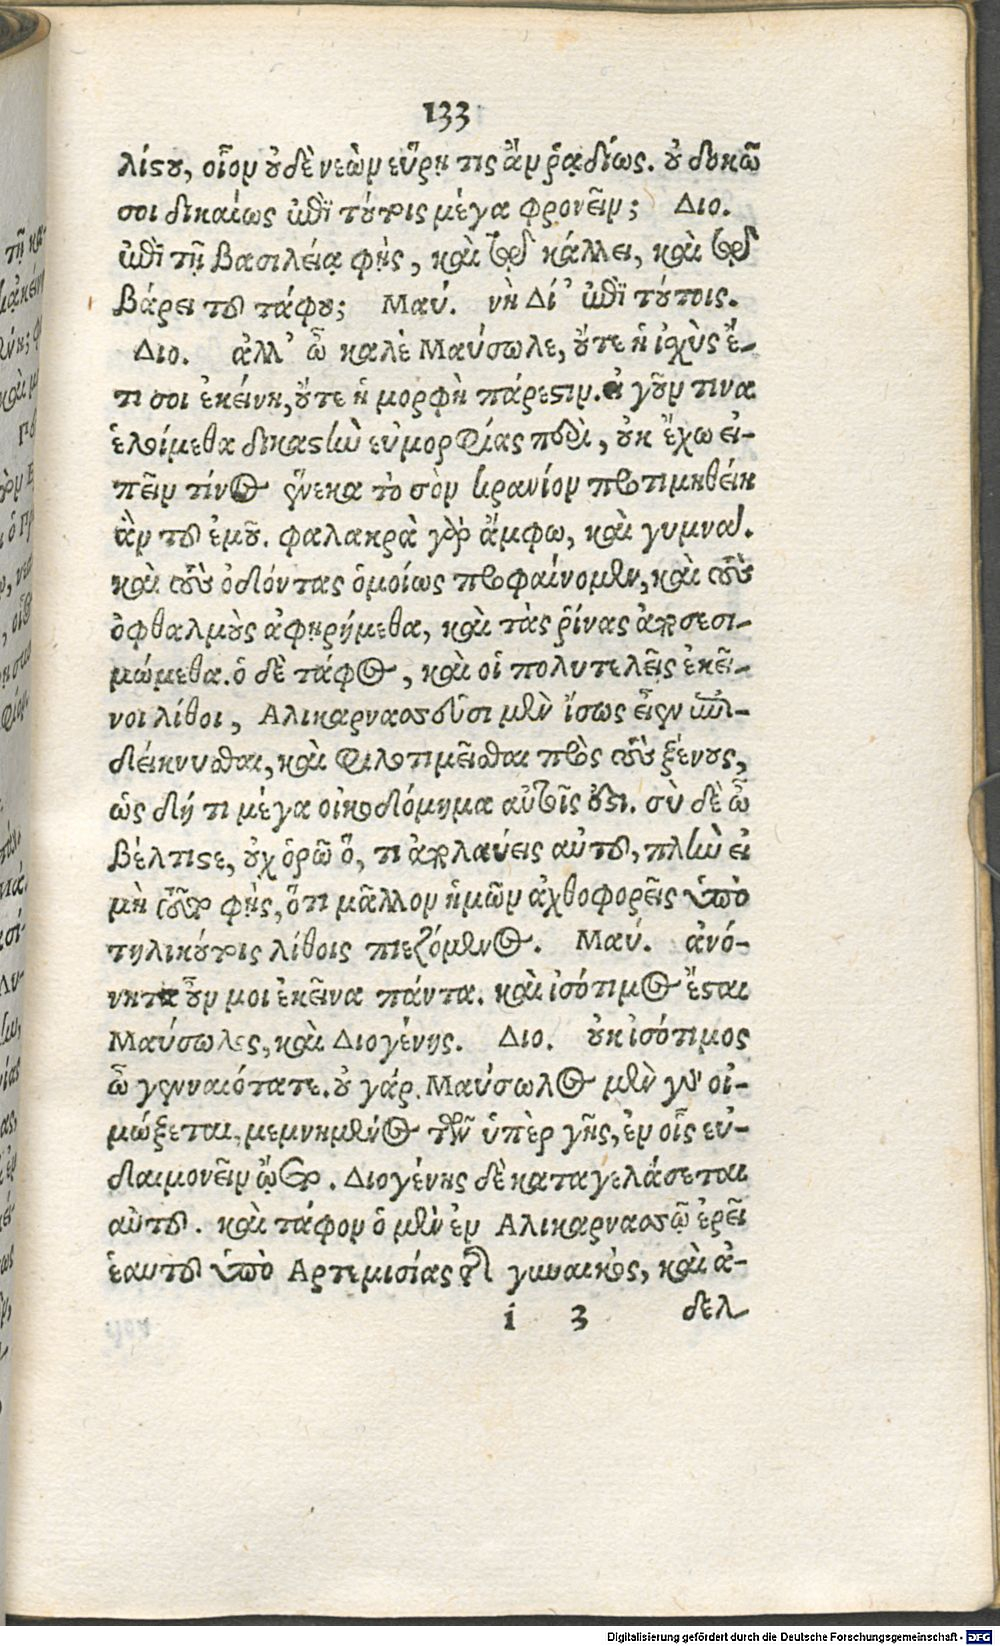 133
λίστου, οἷον οὐδὲ νεὼν εὕρῃ τις ἂν ῥᾳδίως. οὐ δοκῶ
σοι δικαίως ἐπὶ τούτοις μέγα φρονεῖν; Διο.
ἐπὶ τῇ βασιλείᾳ φῄς, καὶ τῷ κάλλει, καὶ τῷ
βάρει τοῦ τάφου; Μαύ. νὴ Δί' ἐπὶ τούτοις.
Διο. ἀλλ' ὦ καλὲ Μαύσωλε, οὔτε ἡ ἰσχὺς ἔ-
τι σοι ἐκείνη, οὔτε ἡ μορφὴ πάρεστιν. εἰ γοῦν τινα
ἑλοίμεθα δικαστὴν εὐμορφίας πέρι, οὐκ ἔχω εἰ-
πεῖν τίνος ἕνεκα τὸ σὸν κρανίον προτιμηθείη
ἂν τοῦ ἐμοῦ. φαλακρὰ γὰρ ἄμφω, καὶ γυμνά.
καὶ τοὺς ὀδόντας ὁμοίως προφαίνομεν, καὶ τοὺς
ὀφθαλμοὺς ἀφῃρήμεθα, καὶ τὰς ῥῖνας ἀποσεσι-
μώμεθα. ὁ δὲ τάφος, καὶ οἱ πολυτελεῖς ἐκεῖ-
νοι λίθοι, Αλικαρνασσοῦσι μὲν ἴσως εἶεν ἐπι-
δείκνυσθαι, καὶ φιλοτιμεῖσθαι πρὸς τοὺς ξένους,
ὡς δή τι μέγα οἰκοδόμημα αὐτοῖς ἐστι. σὺ δὲ ὦ
βέλτιστε, οὐχ ὁρῶ ὅ, τι ἀπολαύεις αὐτοῦ, πλὴν εἰ
μὴ τοῦτο φῄς, ὅτι μᾶλλον ἡμῶν ἀχθοφορεῖς ὑπὸ
τηλικούτοις λίθοις πιεζόμενος. Μαύ. ἀνό-
νητα οὖν μοι ἐκεῖνα πάντα. καὶ ἰσότιμος ἔσται
Μαύσωλος, καὶ Διογένης. Διο. οὐκ ἰσότιμος
ὦ γενναιότατε. οὐ γάρ. Μαύσωλος μὲν γὰρ οἰ-
μώξεται, μεμνημένος τῶν ὑπὲρ γῆς, ἐν οἷς εὐ-
δαιμονεῖν ᾤετο. Διογένης δὲ καταγελάσεται
αὐτοῦ. καὶ τάφον ὁ μὲν ἐν Αλικαρνασσῷ ἐρεῖ
ἑαυτοῦ ὑπὸ Αρτεμισίας τῆς γυναικός, καὶ ἀ-
i 3 δελ
Digitalisierung gefördert durch die Deutsche Forschungsgemeinschaft - DFG